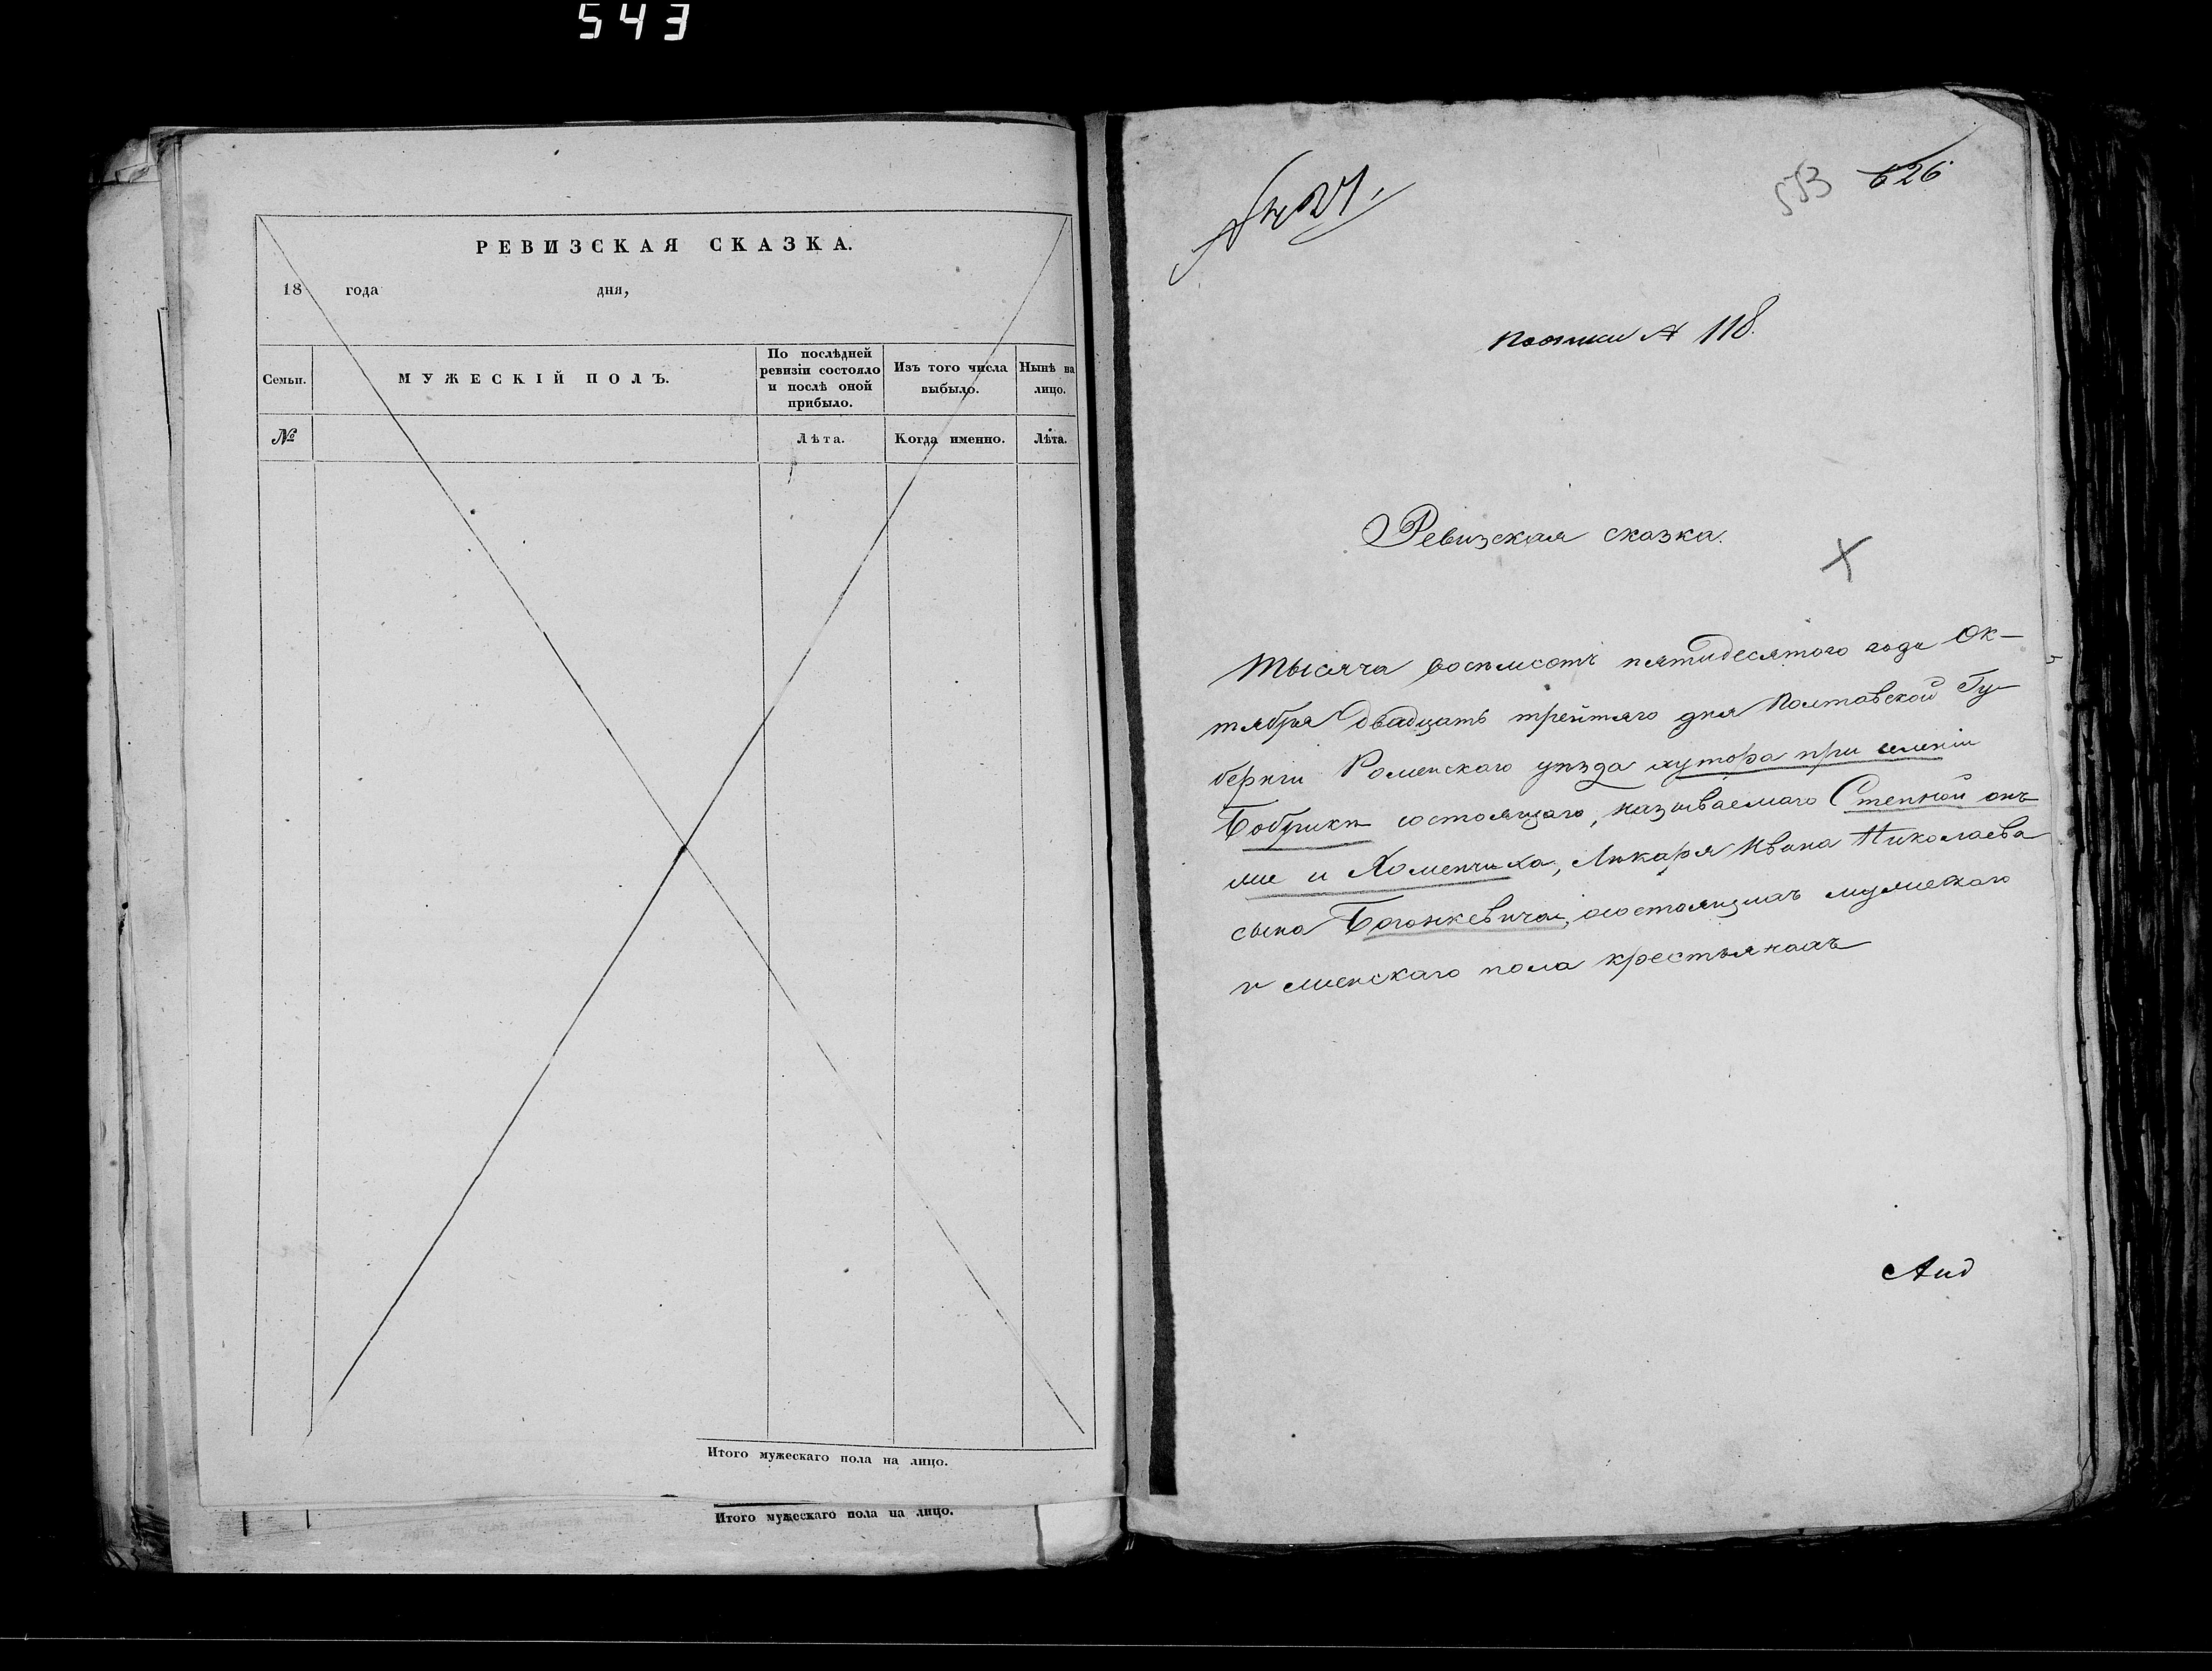 543
РЕВИЗСКАЯ СКАЗКА.
18 года дня,
Семьи.
МУЖЕСКІЙ ПОЛЪ.
По послѣдней
ревизіи состояло
и послѣ оной
прибыло.
Изъ того числа
выбыло.
Нынѣ на
лицо.
№
Лѣта.
Когда именно.
Лѣта.
Итого мужескаго пола на лицо.
Итого мужескаго пола на лицо.
553 626
№ 118.
Ревизская сказка.
Тысяча восемьсотъ пятидесятого года Ок-
тября двадцать третьяго дня Полтавской Гу-
берніи Роменскаго уѣзда хутора при имѣніи
Бобрикѣ состоящаго, называемаго Степной онъ
же и Хоменчиха, Лѣкаря Ивана Николаева
сына Богажевича, о состоящихъ мужескаго
и женскаго пола крестьянахъ